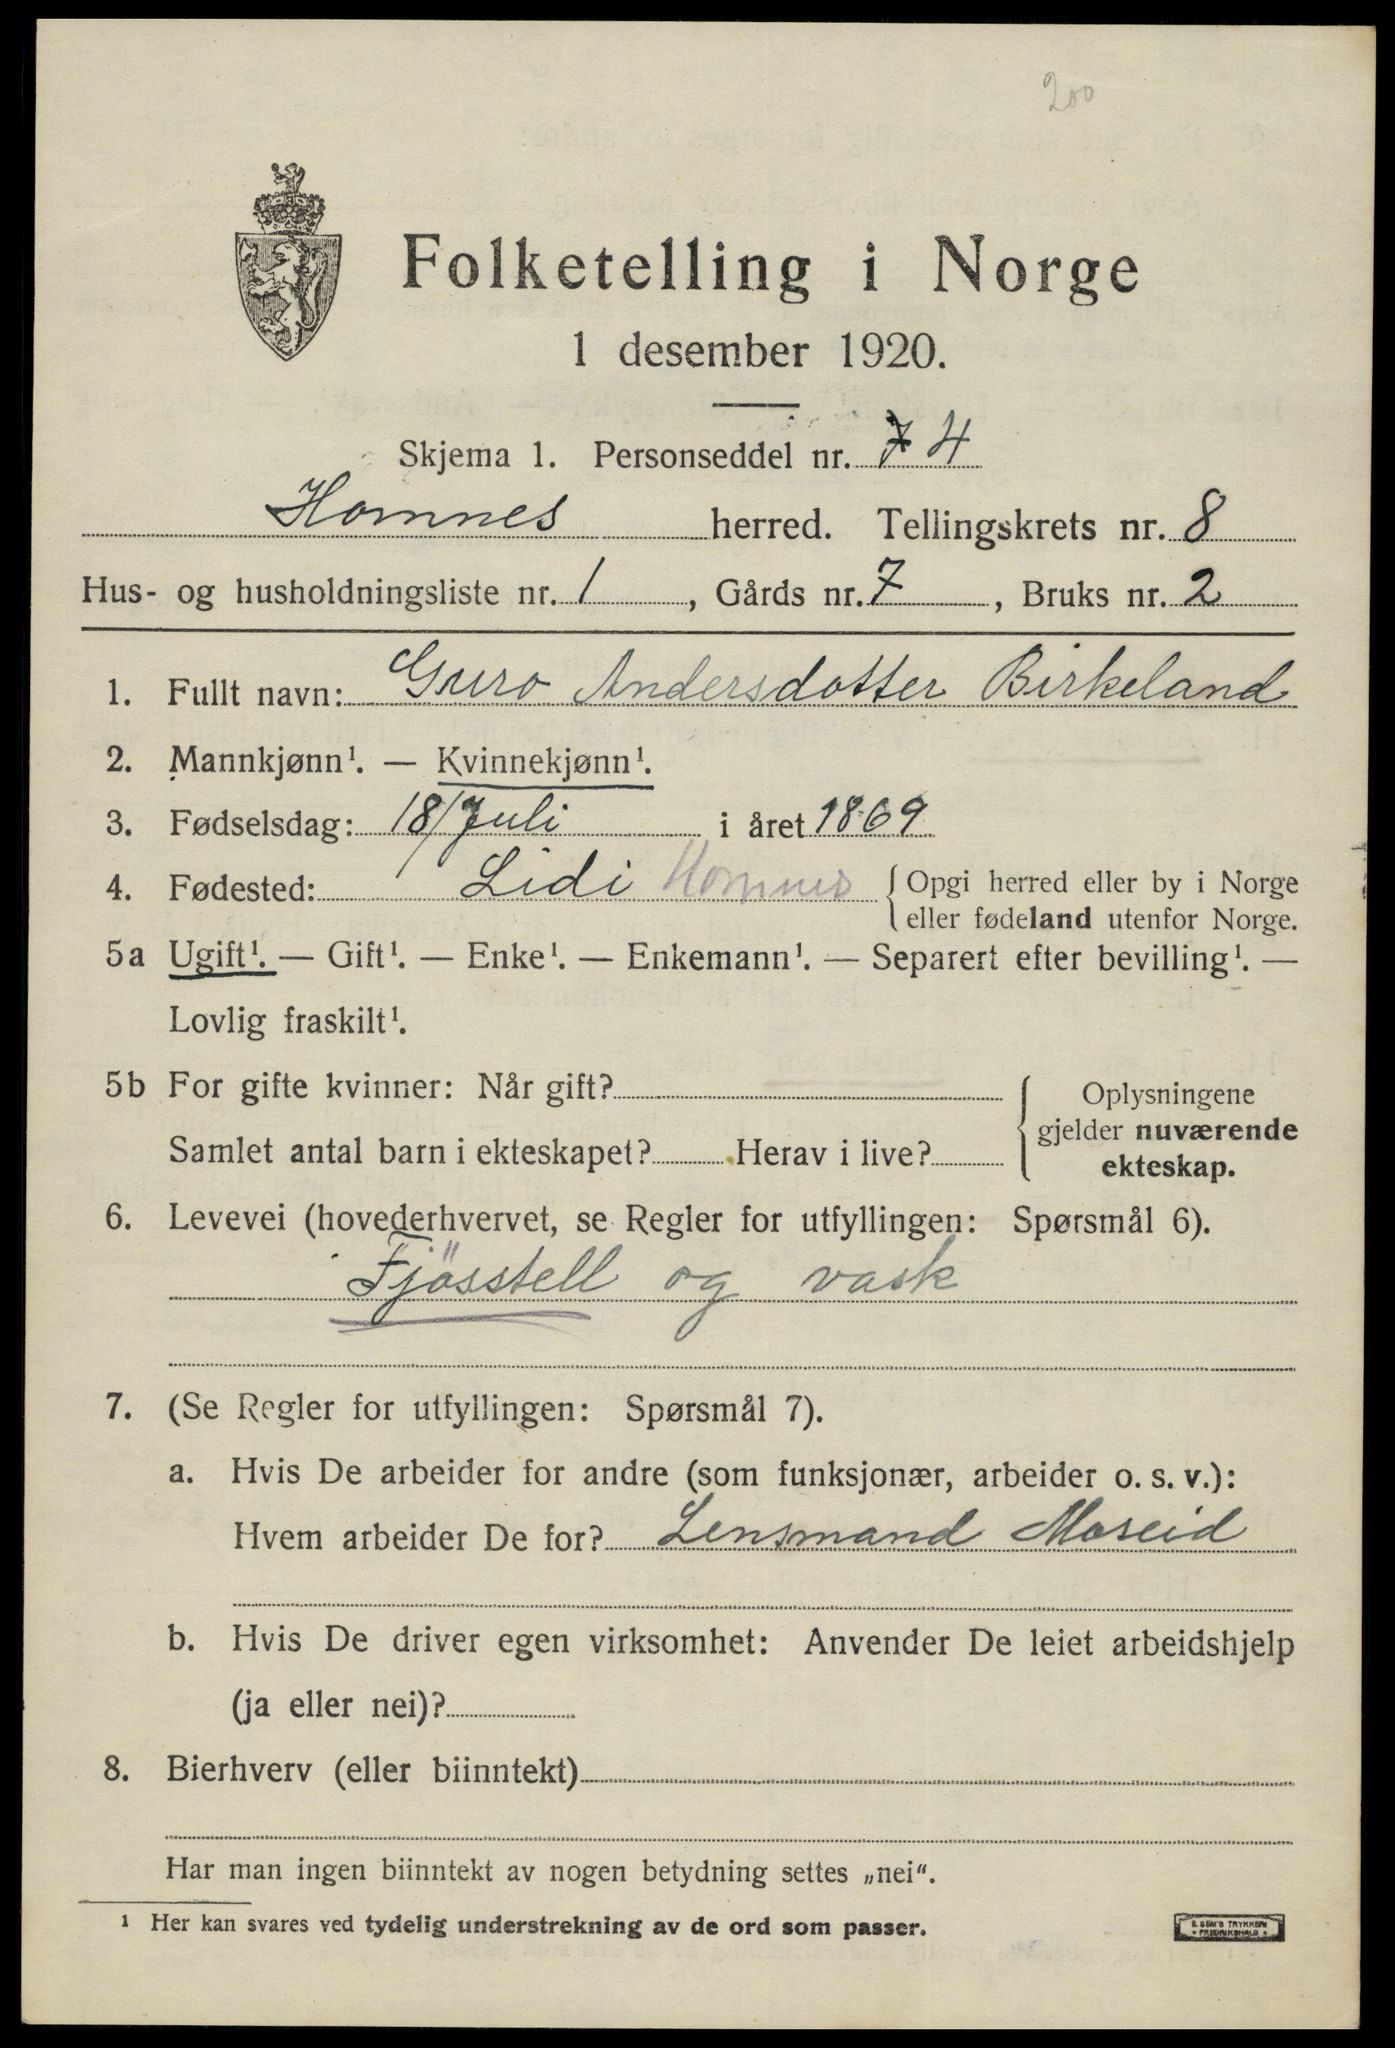 200
Folketelling i Norge
1 desember 1920.
Skjema 1. Personseddel nr. 7 4
Hornnes herred. Tellingskrets nr. 8
Hus- og husholdningsliste nr. 1, Gårds nr. 7, Bruks nr. 2
1. Fullt navn: Guro Andersdotter Birkeland
2. Mannkjønn¹. — Kvinnekjønn¹.
3. Fødselsdag: 18/Juli i året 1869
4. Fødested: Lidi Hornnes { Opgi herred eller by i Norge
eller fødeland utenfor Norge.
5a Ugift¹. — Gift¹. — Enke¹. — Enkemann¹. — Separert efter bevilling¹. —
Lovlig fraskilt¹.
5b For gifte kvinner: Når gift? { Oplysningene
gjelder nuværende
Samlet antal barn i ekteskapet? Herav i live? ekteskap.
6. Levevei (hovederhvervet, se Regler for utfyllingen: Spørsmål 6).
Fjösstell og vask
7. (Se Regler for utfyllingen: Spørsmål 7).
a. Hvis De arbeider for andre (som funksjonær, arbeider o. s. v.):
Hvem arbeider De for? Lensmand Moseid
b. Hvis De driver egen virksomhet: Anvender De leiet arbeidshjelp
(ja eller nei)?
8. Bierhverv (eller biinntekt)
Har man ingen biinntekt av nogen betydning settes „nei“.
¹ Her kan svares ved tydelig understrekning av de ord som passer.
E. SEM'S TRYKKERI
• FREDRIKSHALD •